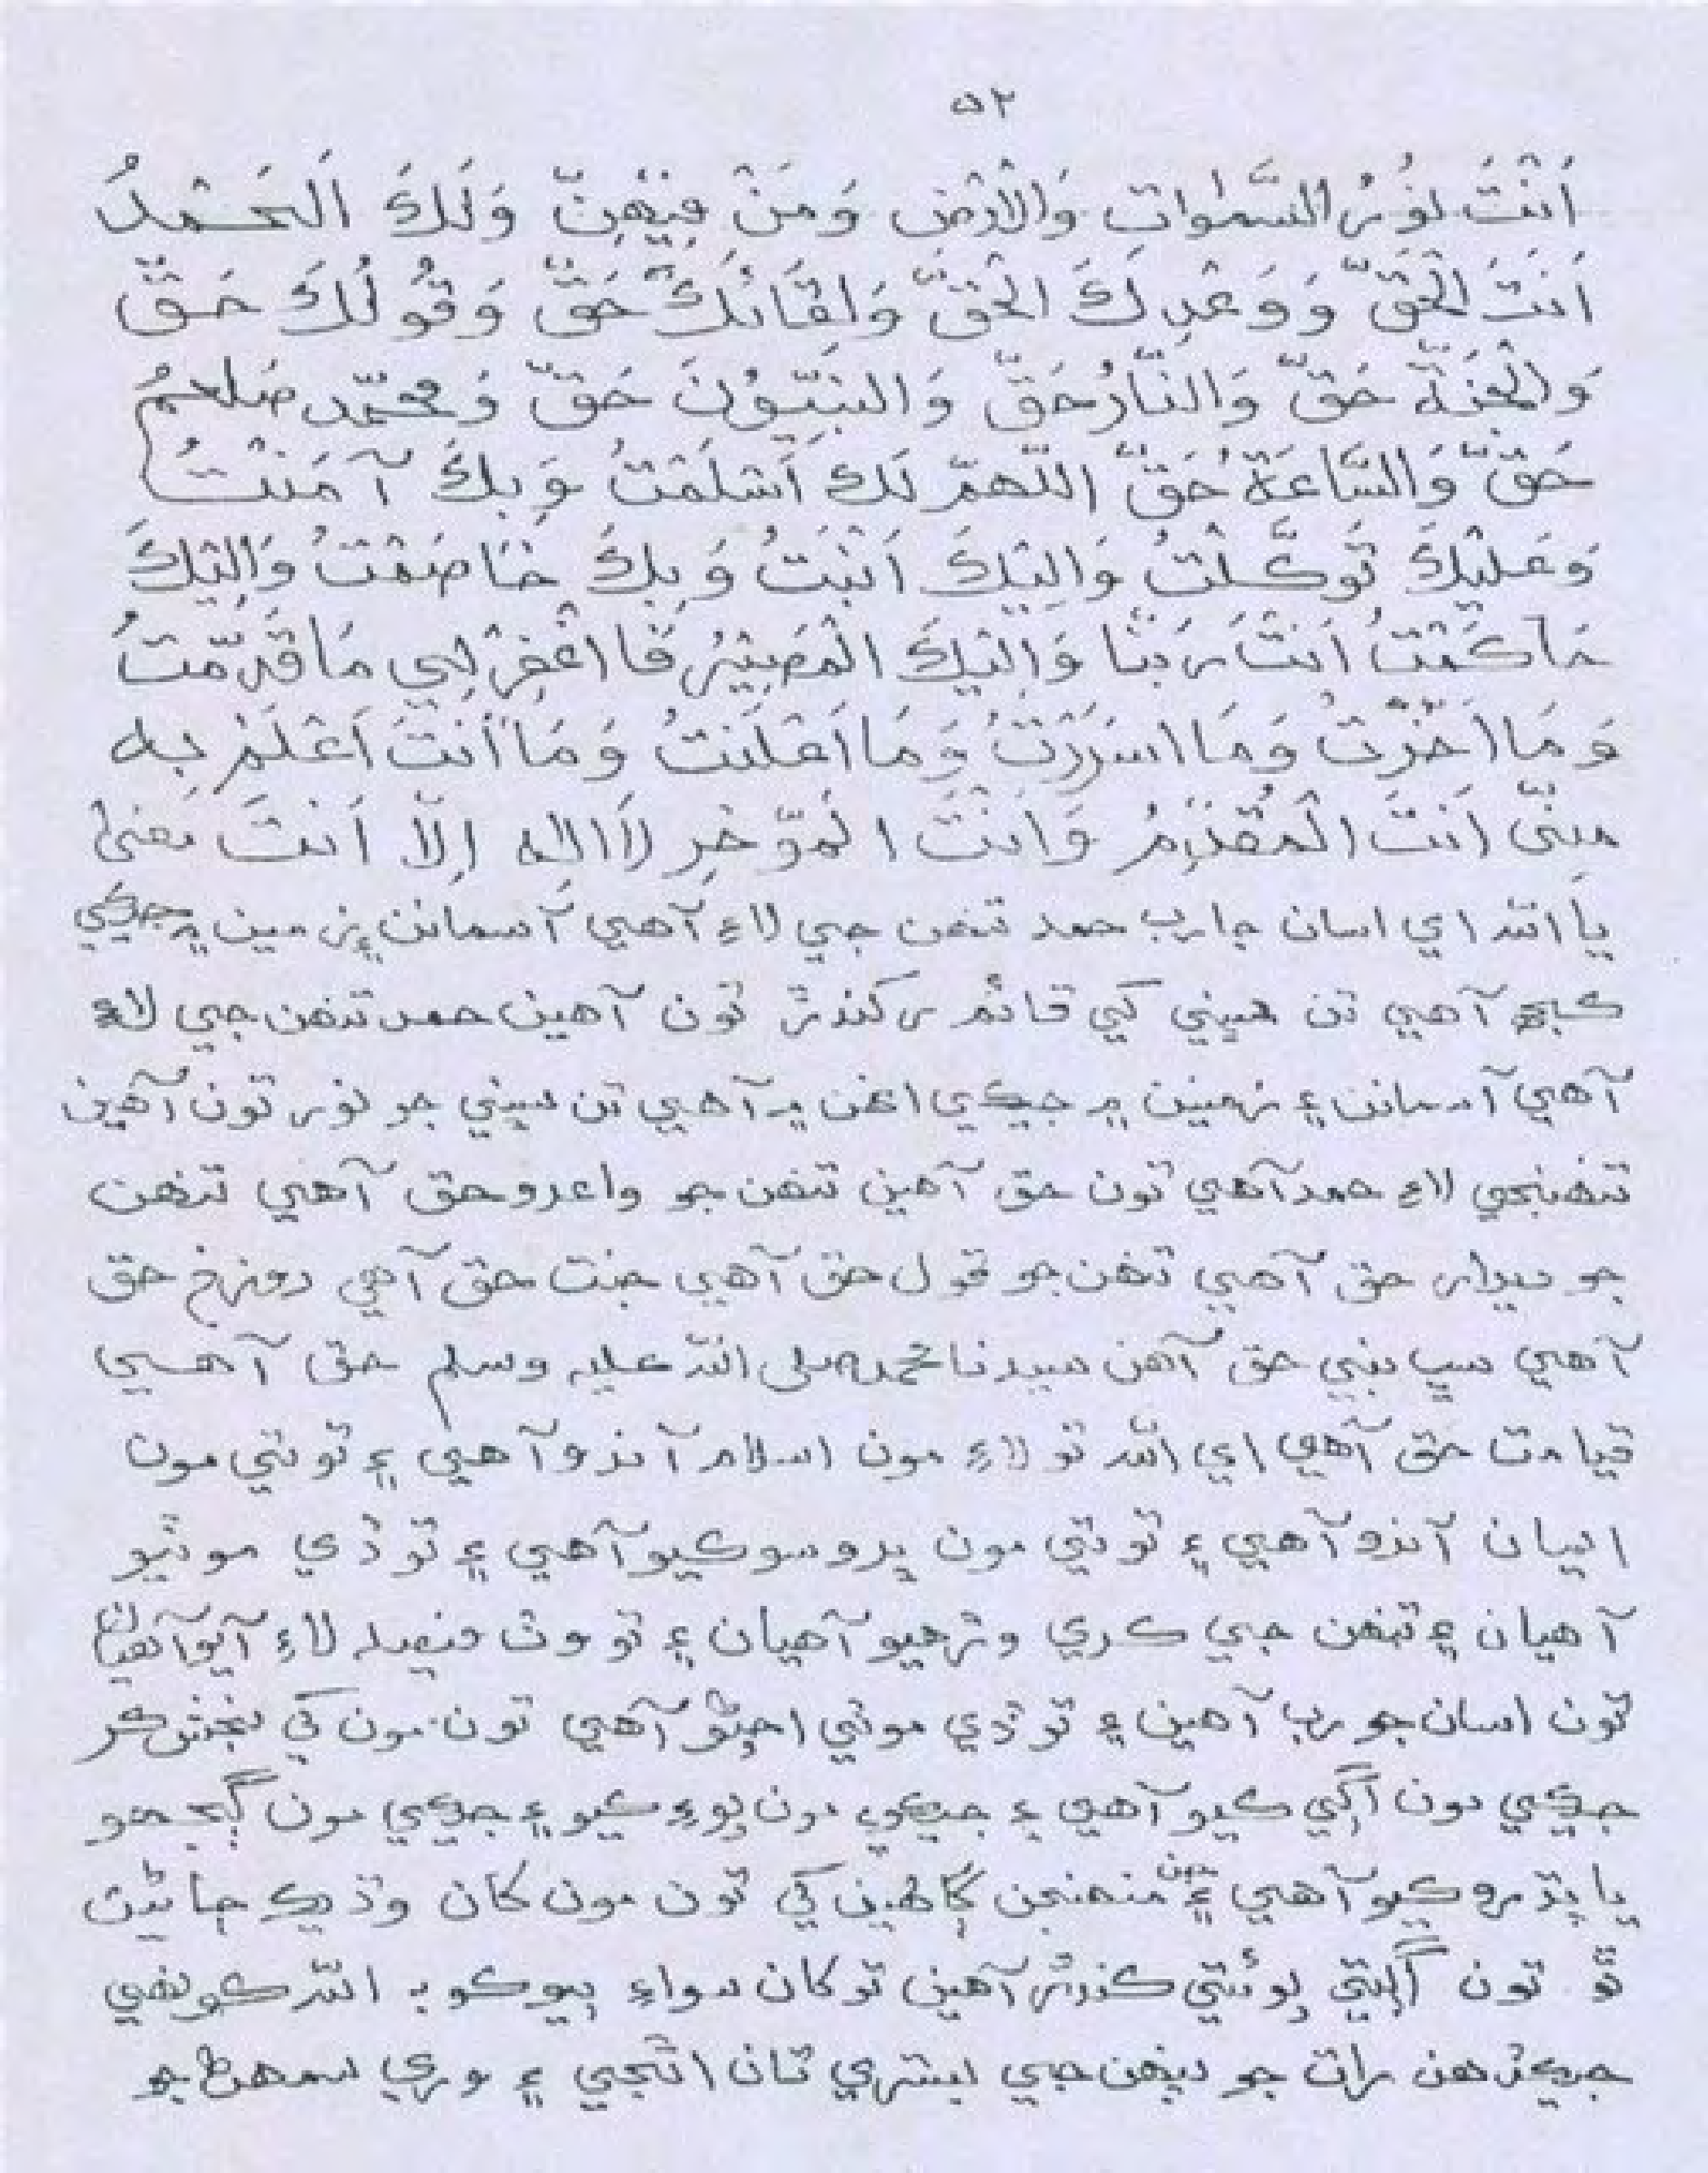 ٥٢
اَنْتَ نُوْرُ السَّمٰوَاتِ وَالْاَرْضِ وَمَنْ فِيْهِنَّ وَلَكَ اَلْحَمْدُ
اَنْتَ الْحَقُّ وَوَعْدِكَ الْحَقُّ وَلِقَائُكَ حَقٌّ وَقُوْلُكَ حَقٌّ
وَالْجَنَّةُ حَقٌّ وَالنَّارُ حَقٌّ وَالنَّبِيُّوْنَ حَقٌّ وَمُحَمَّد صَلعم
حَقٌّ وَالسَّاعَةُ حَقٌّ اللّٰهُمَّ لَكَ اَسْلَمْتُ وَبِكَ آمَنْتُ
وَعَلَيْكَ تَوَكَّلْتُ وَاِلَيْكَ اَنَبْتُ وَبِكَ خَاصَمْتُ وَاِلَيْكَ
حَاكَمْتُ اَنْتَ رَبَّنَا وَاِلَيْكَ الْمَصِيْرُ فَااغْفِرْ لِي مَاقَدَّمْتُ
وَمَا اَخَّرْتُ وَمَا اسْرَرْتُ وَمَا اَعْلَنْتُ وَمَا اَنْتَ اَعْلَمُ بِه
مِنِّي اَنْتَ الْمُقَدِّمُ وَاَنْتَ الْمُوَّخِرِ لَااِلٰه اِلَّا اَنْتَ معنيٰ
يا الله اي اسان جا رب حمد تنهن جي لاءِ آهي آسمانن ۽ زمين ۾ جيڪي
ڪجهه آهي تن سڀني کي قائم رکندڙ تون آهين حمد تنهن جي لاءِ
آهي آسمانن ۽ زمينن ۾ جيڪي انهن ۾ آهي تن سڀني جو نور تون آهين
تنهنجي لاءِ حمد آهي تون حق آهين تنهن جو واعدو حق آهي تنهن
جو ديدار حق آهي تنهن جو قول حق آهي جنت حق آهي دوزخ حق
آهي سڀ نبي حق آهن سيدنا محمد صلى الله عليه وسلم حق آهي
قيامت حق آهي اي الله تو لاءِ مون اسلام آندو آهي ۽ تو تي مون
ايمان آندو آهي ۽ توتي مون ڀروسو ڪيو آهي ۽ تو ڏي موٽيو
آهيان ۽ تنهن جي ڪري وڙهيو آهيان ۽ تو وٽ فيصله لاءِ آيو آهيان
تون اسان جو رب آهين ۽ تو ڏي موٽي اچڻو آهي تون مون کي بخش ڪر
جيڪي مون اڳي ڪيو آهي ۽ جيڪي مون پوءِ ڪيو ۽ جيڪي مون ڳجهو
يا پڌرو ڪيو آهي ۽ جن منهنجن گناهين کي تون مون کان وڌيڪ ڄاڻين
ٿو تون اڳتي پوئتي ڪندڙ آهين تو کان سواءِ ٻيو ڪو به الله ڪونهي
جيڪڏهن رات جو پنهن جي بستري تان اٿجي ۽ وري سمهڻ جو